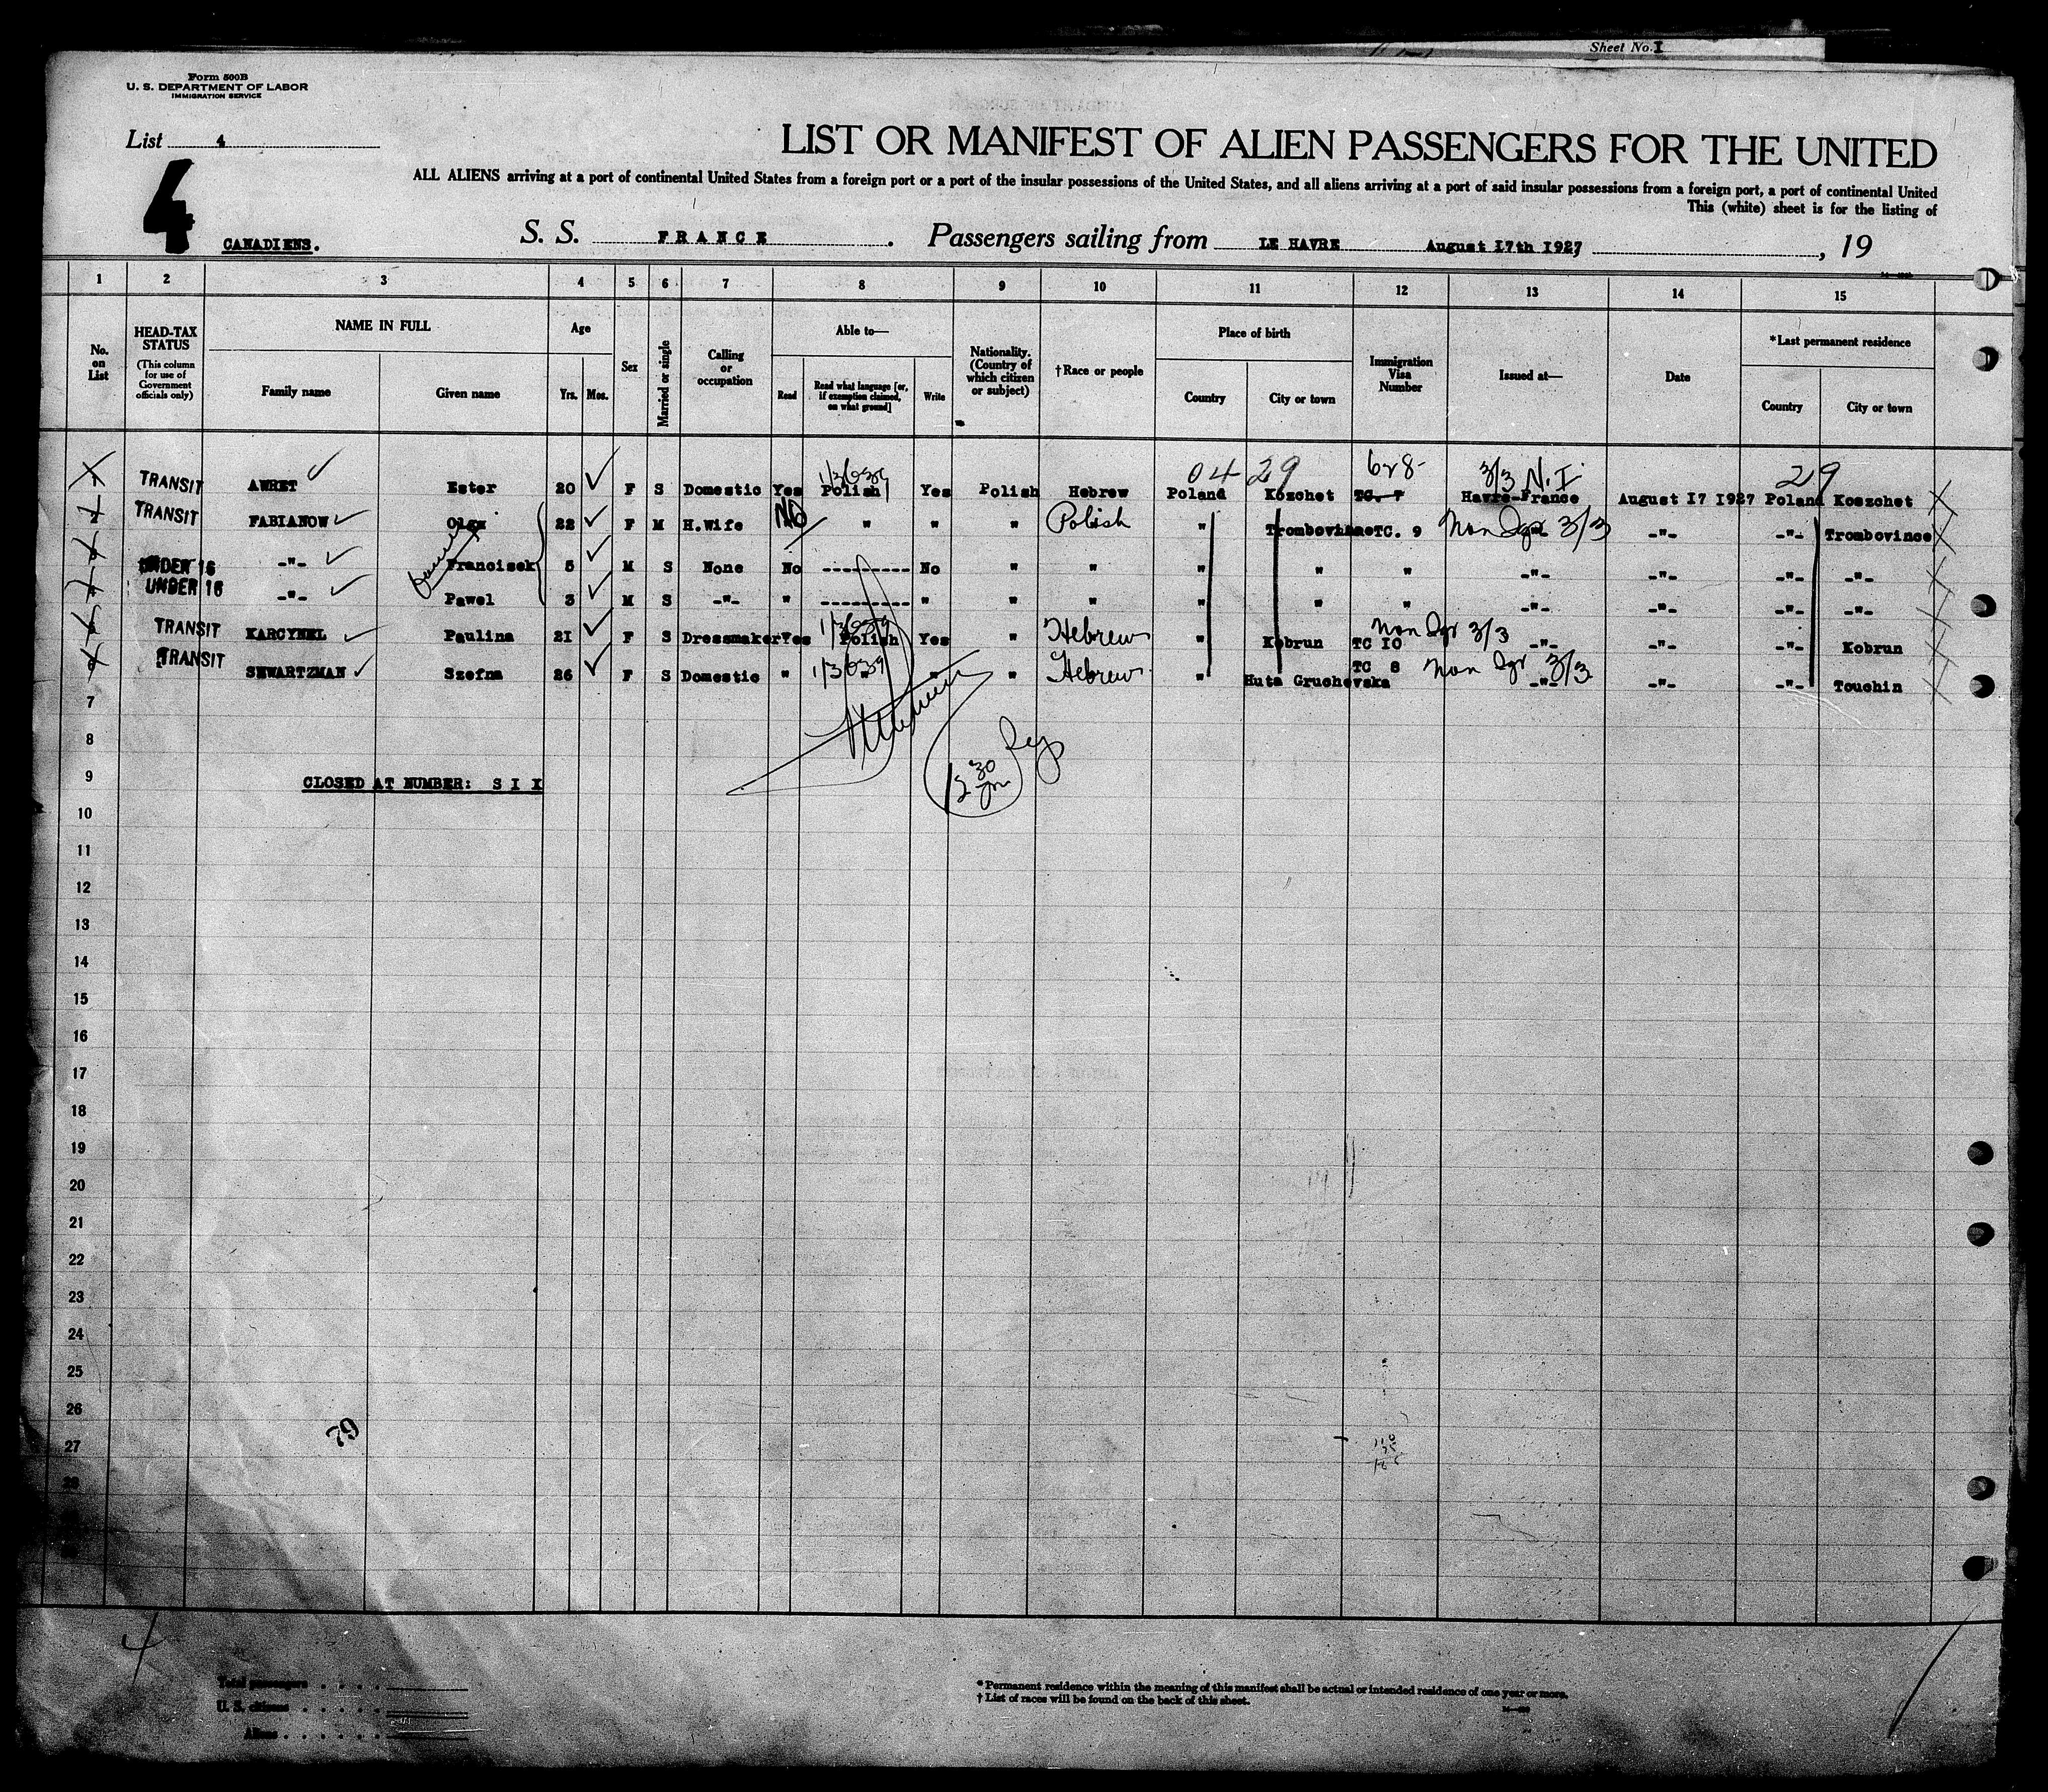 Sheet No. I
Form 500B
U. S. DEPARTMENT OF LABOR
IMMIGRATION SERVICE
List 4
LIST OR MANIFEST OF ALIEN PASSENGERS FOR THE UNITED
ALL ALIENS arriving at a port of continental United States from a foreign port or a port of the insular possessions of the United States, and all aliens arriving at a port of said insular possessions from a foreign port, a port of continental United
This (white) sheet is for the listing of
4
CANADIENS.
S. S. FRANCE. Passengers sailing from LE HAVRE August 17th 1927, 19
1 2 3 4 5 6 7 8 9 10 11 12 13 14 15
No. on List
HEAD-TAX STATUS
(This column for use of Government officials only)
NAME IN FULL
Family name Given name
Age
Yrs. Mos.
Sex
Married or single
Calling or occupation
Able to—
Read
Read what language [or, if exemption claimed, on what ground]
Write
Nationality. (Country of which citizen or subject)
†Race or people
Place of birth
Country City or town
Immigration Visa Number
Issued at—
Date
*Last permanent residence
Country City or town
04 29 628 3/3 N.I 29
TRANSIT AWRET Ester 20 F S Domestic Yes Polish Yes Polish Hebrew Poland Kozchet TC. 7 Havre-France August 17 1927 Poland Koszchet
TRANSIT FABIANOW Olga 22 F M H.Wife No " " " Polish " Trombovince TC. 9 Non Igr 3/3 -"- -"- Trombovince
UNDER 16 -"- Francisek 5 M S None No ---------- No " " " " " -"- -"- -"- -"-
UNDER 16 -"- Pawel 3 M S -"- " ---------- " " " " " " -"- -"- -"- -"-
TRANSIT KARCYNEL Paulina 21 F S Dressmaker Yes Polish Yes " Hebrew " Kobrun TC 10 Non Igr 3/3 -"- -"- -"- Kobrun
TRANSIT SHWARTZMAN Szefna 26 F S Domestic " " " " Hebrew " Huta Gruchovska TC 8 Non Igr 3/3 -"- -"- -"- Touchin
7
8
9
CLOSED AT NUMBER: S I X
12 30 pm
10
11
12
13
14
15
16
17
18
19
20
21
22
23
24
25
26
79
27
28
4
Total passengers
U. S. citizens
Aliens
* Permanent residence within the meaning of this manifest shall be actual or intended residence of one year or more.
† List of races will be found on the back of this sheet.